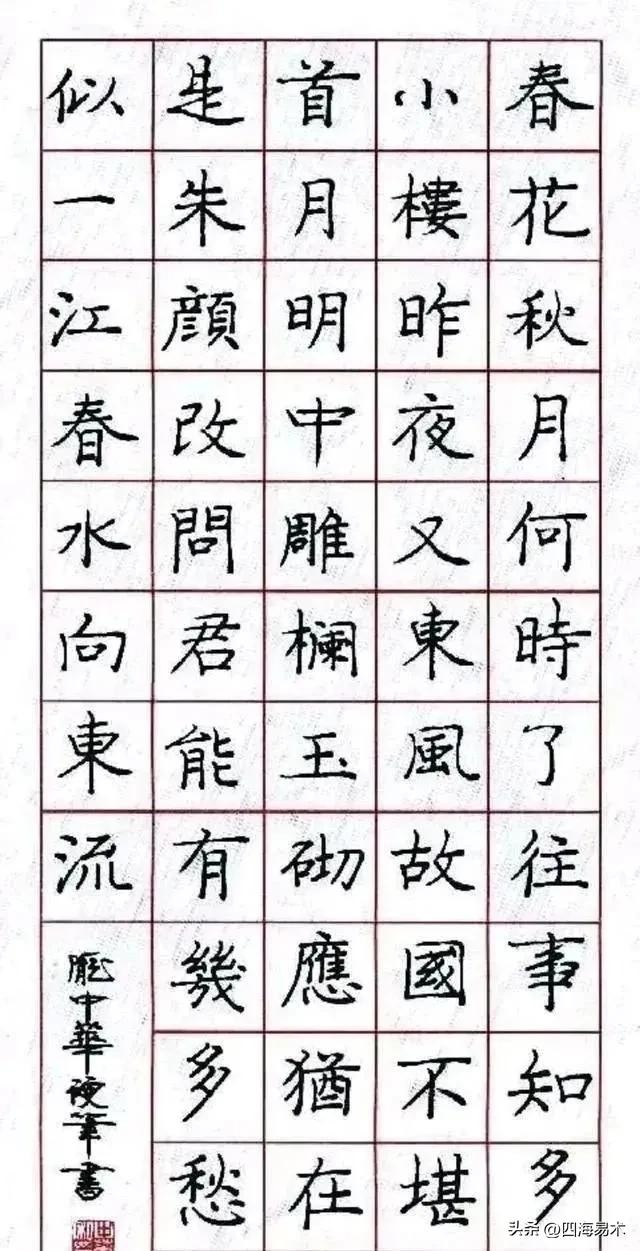 春花秋月何時了往事知多
小樓昨夜又東風故國不堪
首月明中雕欄玉砌應猶在
是朱顔改問君能有幾多愁
似一江春水向東流
龐中華硬筆書
头条 @四海易术